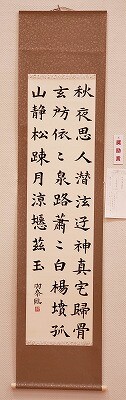 秋夜思人潜泣迂神真宅歸骨
玄房依〻泉路蕭〻白楊墳孤
山静松踈月涼懸茲玉
羽峯臨
奨励賞